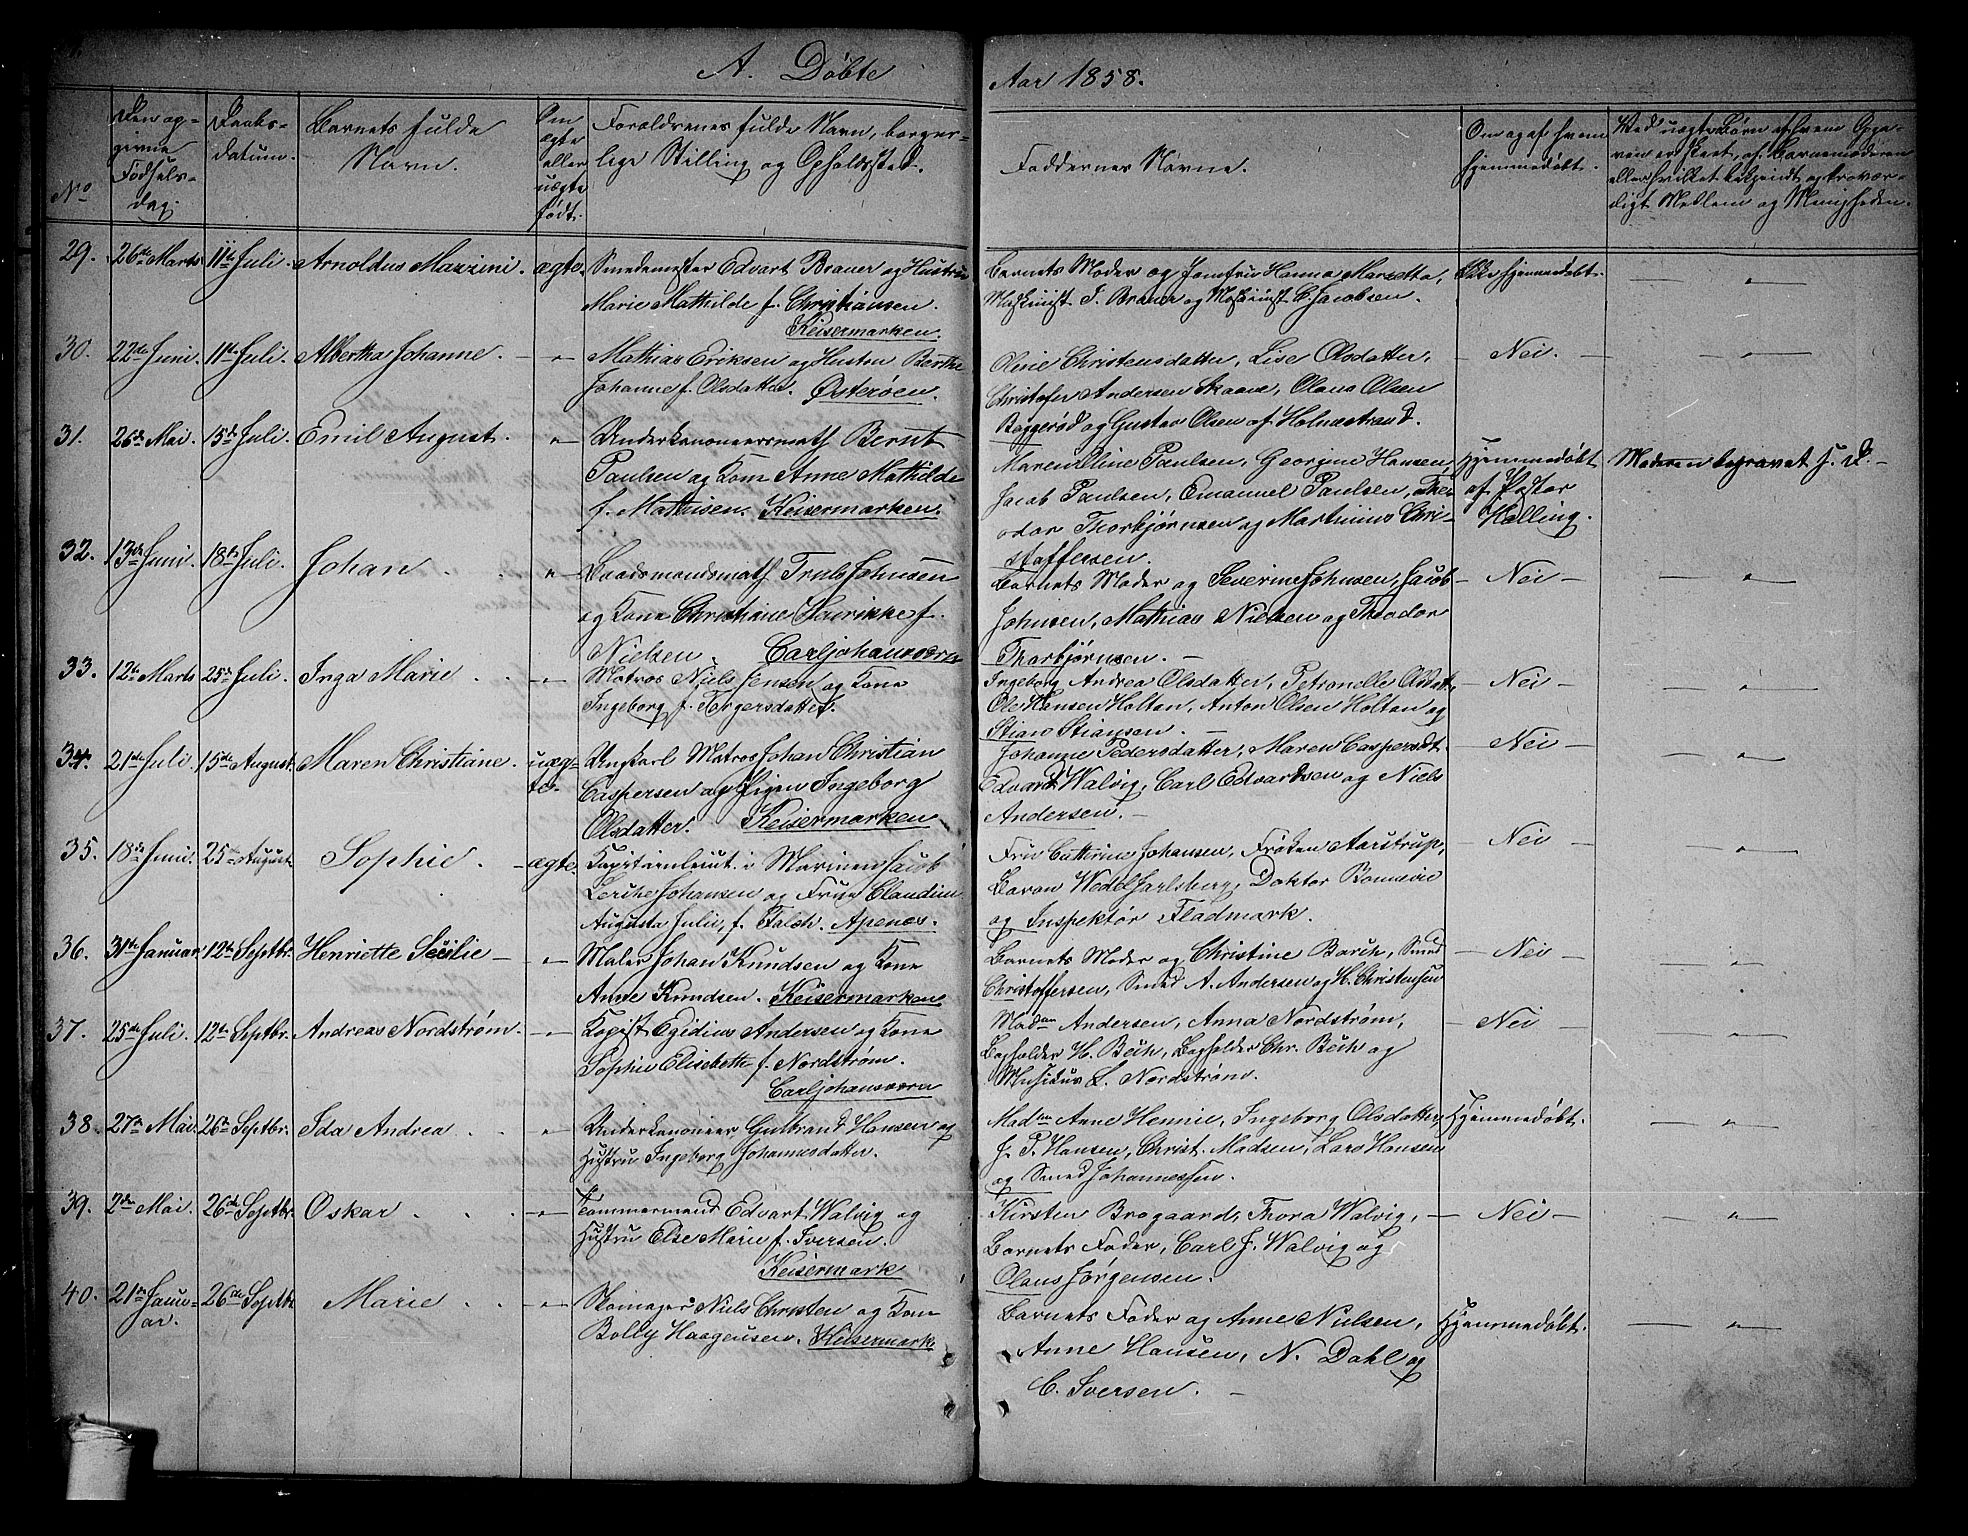 A. Døbte
Aar 1858.
No
Den op-
givne
Fødsels-
dag.
Daabs-
datum.
Barnets fulde
Navn.
Om
ægte
eller
uægte
født.
Forældrenes fulde Navn, borger-
lige Stilling og Opholdssted.
Faddernes Navne.
Om og af hvem
hjemmedøbt.
Ved uægte Børn af hvem Opga-
ven er skeet, af Barnemoderen
eller hvilket bekjendt og trovær-
digt Medlem og Menigheden.
29. 26de Marts 11te Juli. Arnoldus Mazzini. ægte. Smedemester Edvart Braner og Hustru
Marie Mathilde f. Christiansen.
Keisermarken.
Barnets Moder og Jomfru Hanna Marsetta,
Maskinist J. Braner og Maskinist C. Jacobsen.
Ikke hjemmedøbt.
30. 22de Juni. 11te Juli. Albertha Johanne. — " — Mathias Eriksen og Hustru Berthe
Johanne f. Olsdatter. Østerøen.
Oline Christensdatter, Lise Olsdatter,
Christofer Andersen Skaane, Olaus Olsen
Baggerød og Gustav Olsen af Holmestrand.
— Nei. —
31. 26de Mai. 15de Juli. Emil August. " — Underkanoneersmath Bernt
Paulsen og Kone Anne Mathilde
f. Mathisen. Keisermarken.
Maren Oline Paulsen, Georgine Hansen,
Jacob Paulsen, Emanuel Paulsen, The-
odor Thorbjørnsen og Martinius Chri-
stoffersen.
Hjemmedøbt
af Pastor
Halling.
Moderen begravet s. D. —
32. 13de Juni. 18de Juli. Johan. " — Baadsmandsmath Truls Johnsen
og Kone Christiane Henrikke f.
Nielsen. Carljohansværn
Barnets Moder og Severine Johnsen, Jacob
Johnsen, Mathias Nielsen og Theodor
Thorbjørnsen. —
— Nei —
33. 12te Marts 25de Juli. Inga Marie — " — Matros Niels Jensen og Kone
Ingeborg f. Torgersdatter.
Ingeborg Andrea Olsdatter, Petronelle Olsdatt.,
Ole Hansen Holtan, Anton Olsen Holtan og
Stian Stiansen. —
Nei —
34. 21de Juli. 15de August. Maren Christiane. uæg-
te. Ungkarl Matros Johan Christian
Caspersen og Pigen Ingeborg
Olsdatter. Keisermarken
Johanne Pedersdatter, Maren Caspersdt.
Edvard Walvig, Carl Edvardsen og Niels
Andersen. —
— Nei —
35. 18de Juni. 25de August. Sophie. — ægte. Kapitainleiut. i Marinen Jacob
Lerche Johansen og Frue Claudine
Augusta Julie, f. Falch. Apenæs.
Fru Cathrine Johansen, Frøken Aarstrup,
Baron Wedel Jarlsberg, Doktor
og Inspektør Fladmark.
— Nei —
36. 31te Januar 12te Septbr. Henriette Secilie — — " — Maler Johan Knudsen og Kone
Anne Knudsen. Keisermarken
Barnets Moder og Christine Barth, Smed
Christoffersen, Smed A. Andersen og H. Christensen
— Nei —
37. 25de Juli. 12te Septbr. Andreas Nordstrøm. — " — Kopist Egidius Andersen og Kone
Sophie Elisabeth f. Nordstrøm.
Carljohansværn
Madm Andersen, Anna Nordstrøm,
Bogholder H. Bech, Bogholder Chr. Bech og
Musikus L. Nordstrøm.
— Nei —
38. 27de Mai. 26de Septbr. Ida Andrea. " — Underkanoneer Gulbrand Hansen og
Hustru Ingeborg Johannesdatter.
Madm Anne Hennie, Ingeborg Olsdatter,
J. P. Hansen, Christ. Madsen, Lars Hansen
og Smed Johannessen.
Hjemmedøbt.
39. 2den Mai. 26de Septbr. Oskar. — " — Tømmermand Edvart Walvig og
Hustru Else Marie f. Iversen.
Keisermark
Kirsten Brogaard, Thora Walvig,
Barnets Fader, Carl J. Walvig og
Olaus Jørgensen.
— Nei —
40. 21de Janu-
ar. 26de Septbr Marie. — " — Skomager Niels Christen og Kone
Bolly Haagensen. Keisermark
Barnets Fader og Anne Nielsen,
Anne Hansen, N. Dahl og
C. Iversen. —
Hjemmedøbt.